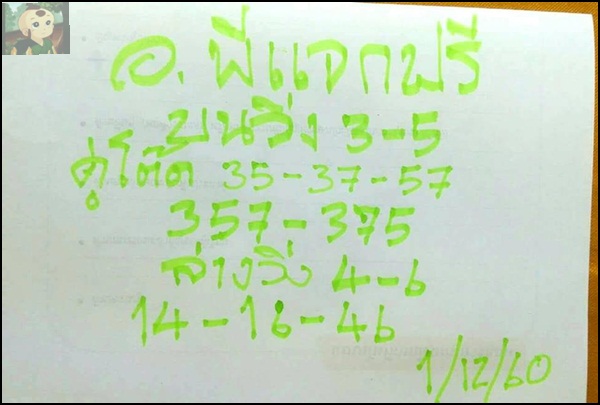 อ. พีแจกฟรี
บนวิ่ง 3-5
คู่โต๊ด 35-37-57
357-375
ล่างวิ่ง 4-6
14-16-46
1/12/60